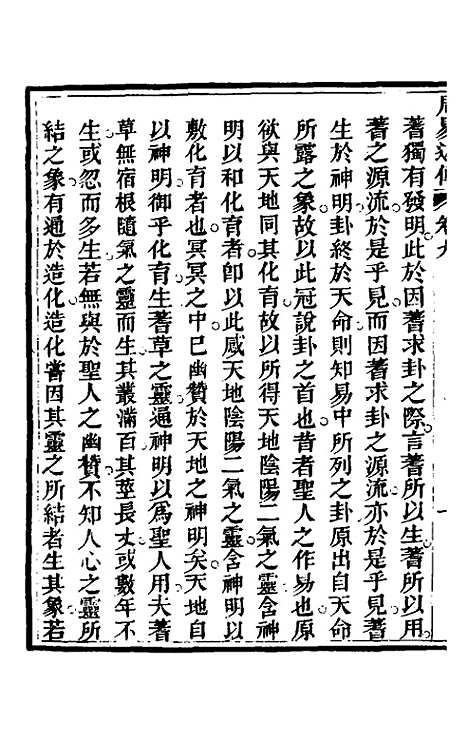 蓍獨有發明此於因蓍求卦之際言蓍所以生蓍所以用
蓍之源流於是乎見而因蓍求卦之源流亦於是乎見蓍
生於神明卦終於天命則知易中所列之卦原出自天命
所露之象故以此冠說卦之首也昔者聖人之作易也原
欲與天地同其化育故以所得天地陰陽二氣之靈含神
明以和化育者卽以此感天地陰陽二氣之靈含神明以
敷化育者也冥冥之中已幽贊於天地之神明矣天地自
以神明御乎化育生蓍草之靈通神明以爲聖人用夫蓍
草無宿根隨氣之靈而生其叢滿百其莖長丈或數年不
生或忽而多生若無與於聖人之幽贊不知人心之靈所
結之象有通於造化造化嘗因其靈之所結者生其象若